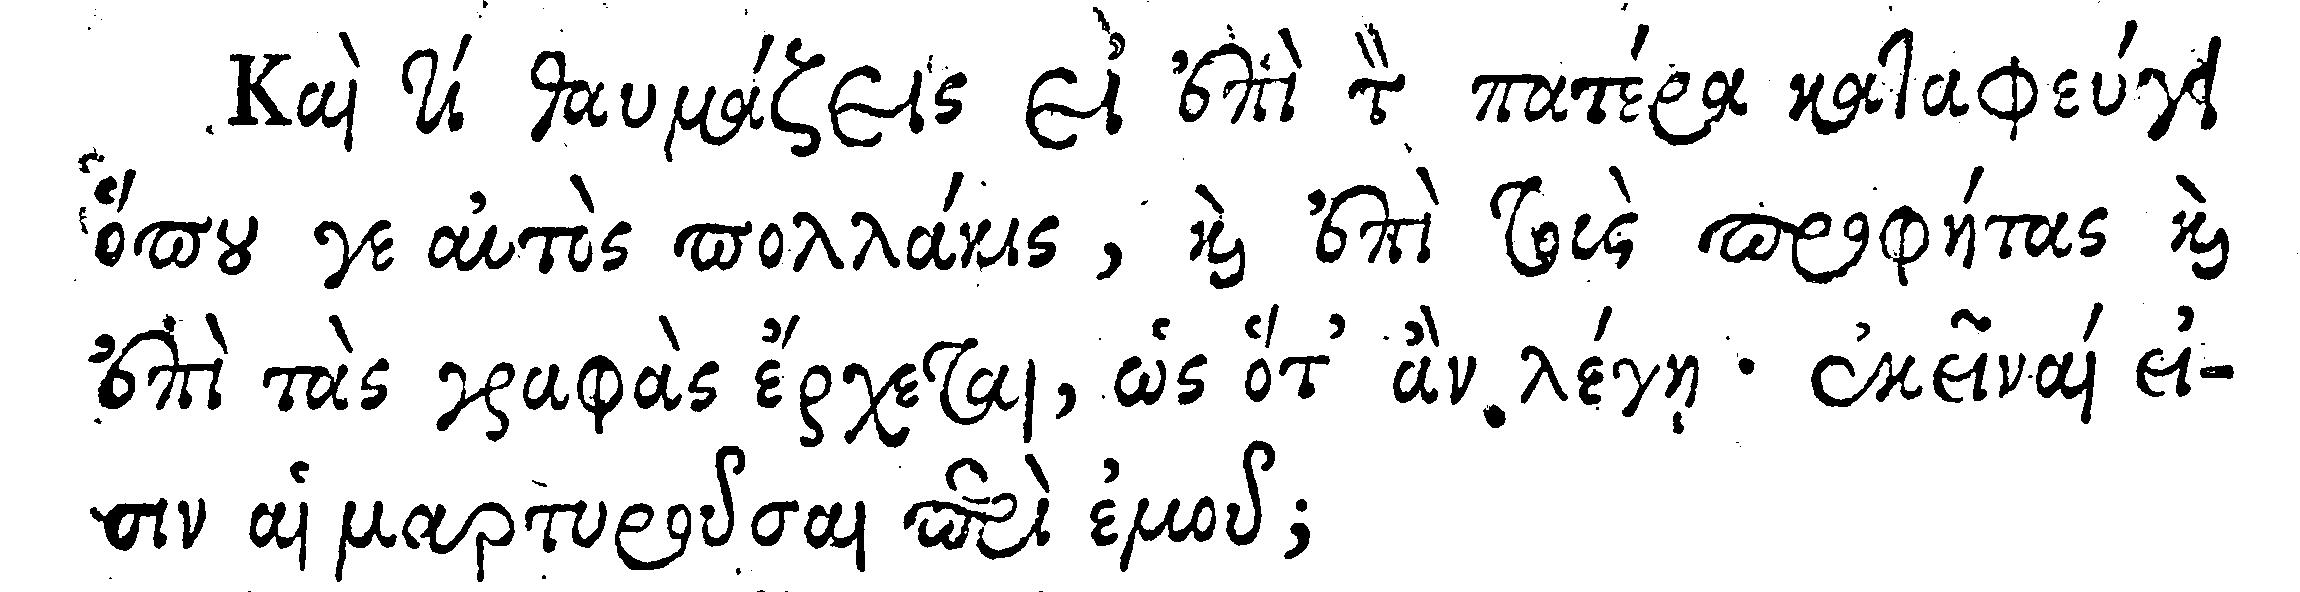 Καὶ τί θαυμάζεις εἰ ἐπὶ τὸν πατέρα καταφεύγει
ὅπου γε αὐτὸς πολλάκις, καὶ ἐπὶ τοὺς προφήτας καὶ
ἐπὶ τὰς γραφὰς ἔρχεται, ὡς ὅτ' ἂν λέγῃ· ἐκεῖναί εἰ-
σιν αἱ μαρτυροῦσαι περὶ ἐμοῦ;